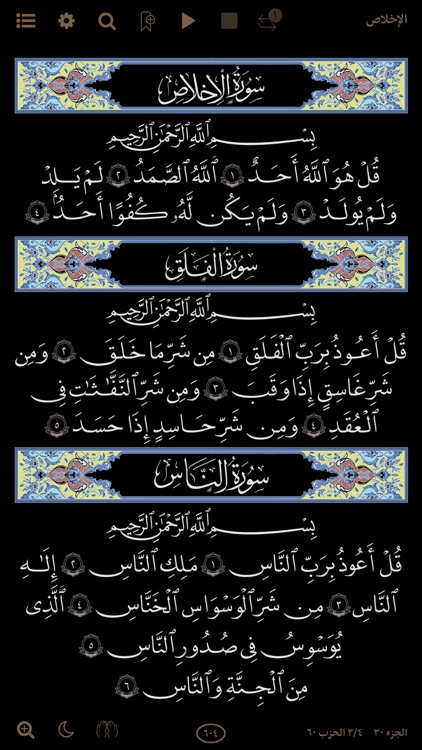 الإخلاص
١
سُورَةُ الْإِخْلَاصِ
بِسْمِ ٱللَّهِ ٱلرَّحْمَٰنِ ٱلرَّحِيمِ
قُلْ هُوَ ٱللَّهُ أَحَدٌ ١ ٱللَّهُ ٱلصَّمَدُ ٢ لَمْ يَلِدْ
وَلَمْ يُولَدْ ٣ وَلَمْ يَكُن لَّهُۥ كُفُوًا أَحَدٌۢ ٤
سُورَةُ الْفَلَقِ
بِسْمِ ٱللَّهِ ٱلرَّحْمَٰنِ ٱلرَّحِيمِ
قُلْ أَعُوذُ بِرَبِّ ٱلْفَلَقِ ١ مِن شَرِّ مَا خَلَقَ ٢ وَمِن
شَرِّ غَاسِقٍ إِذَا وَقَبَ ٣ وَمِن شَرِّ ٱلنَّفَّٰثَٰتِ فِى
ٱلْعُقَدِ ٤ وَمِن شَرِّ حَاسِدٍ إِذَا حَسَدَ ٥
سُورَةُ النَّاسِ
بِسْمِ ٱللَّهِ ٱلرَّحْمَٰنِ ٱلرَّحِيمِ
قُلْ أَعُوذُ بِرَبِّ ٱلنَّاسِ ١ مَلِكِ ٱلنَّاسِ ٢ إِلَٰهِ
ٱلنَّاسِ ٣ مِن شَرِّ ٱلْوَسْوَاسِ ٱلْخَنَّاسِ ٤ ٱلَّذِى
يُوَسْوِسُ فِى صُدُورِ ٱلنَّاسِ ٥
مِنَ ٱلْجِنَّةِ وَٱلنَّاسِ ٦
الجزء ٣٠ ٣/٤ الحزب ٦٠
٦٠٤